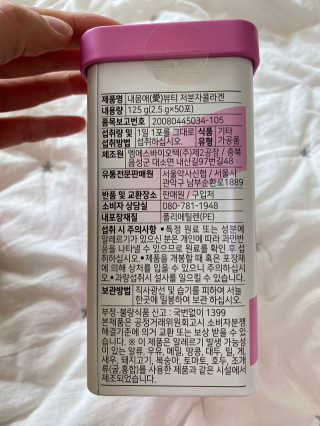 제품명 내몸애(愛)뷰티 저분자콜라겐
내용량 125 g(2.5 g×50포)
품목보고번호 20080445034-105
섭취량 및 섭취방법 1일 1포를 그대로 섭취하십시오. 식품유형 기타가공품
제조원 엠에스바이오텍(주)제2공장 / 충북
음성군 대소면 내산길97번길48
유통전문판매원 서울약사신협 / 서울시
관악구 남부순환로1889
반품 및 교환장소 판매원 / 구입처
소비자 상담실 080-781-1948
내포장재질 폴리에틸렌(PE)
섭취 시 주의사항 •특정 원료 또는 성분에
알레르기가 있으신 분은 개인에 따라 과민반
응을 나타낼 수 있으므로 원료를 확인 후 섭
취하십시오. •제품을 개봉할 때 혹은 포장재
에 의해 상처를 입을 수 있으니 주의하십시
오. •과량섭취시 설사를 일으킬 수 있습니다.
보관방법 직사광선 및 습기를 피하여 서늘
한곳에 밀봉하여 보관 하십시오.
부정·불량식품 신고 : 국번없이 1399
본제품은 공정거래위원회고시 소비자분쟁
해결기준에 의거 교환 또는 보상 받을 수 있
습니다. ※ 이 제품은 알레르기 발생 가능성
이 있는 알류, 우유, 메밀, 땅콩, 대두, 밀, 게,
새우, 돼지고기, 복숭아, 토마토, 호두, 조개
류(굴,홍합)를 사용한 제품과 같은 시설에서
제조되었습니다.